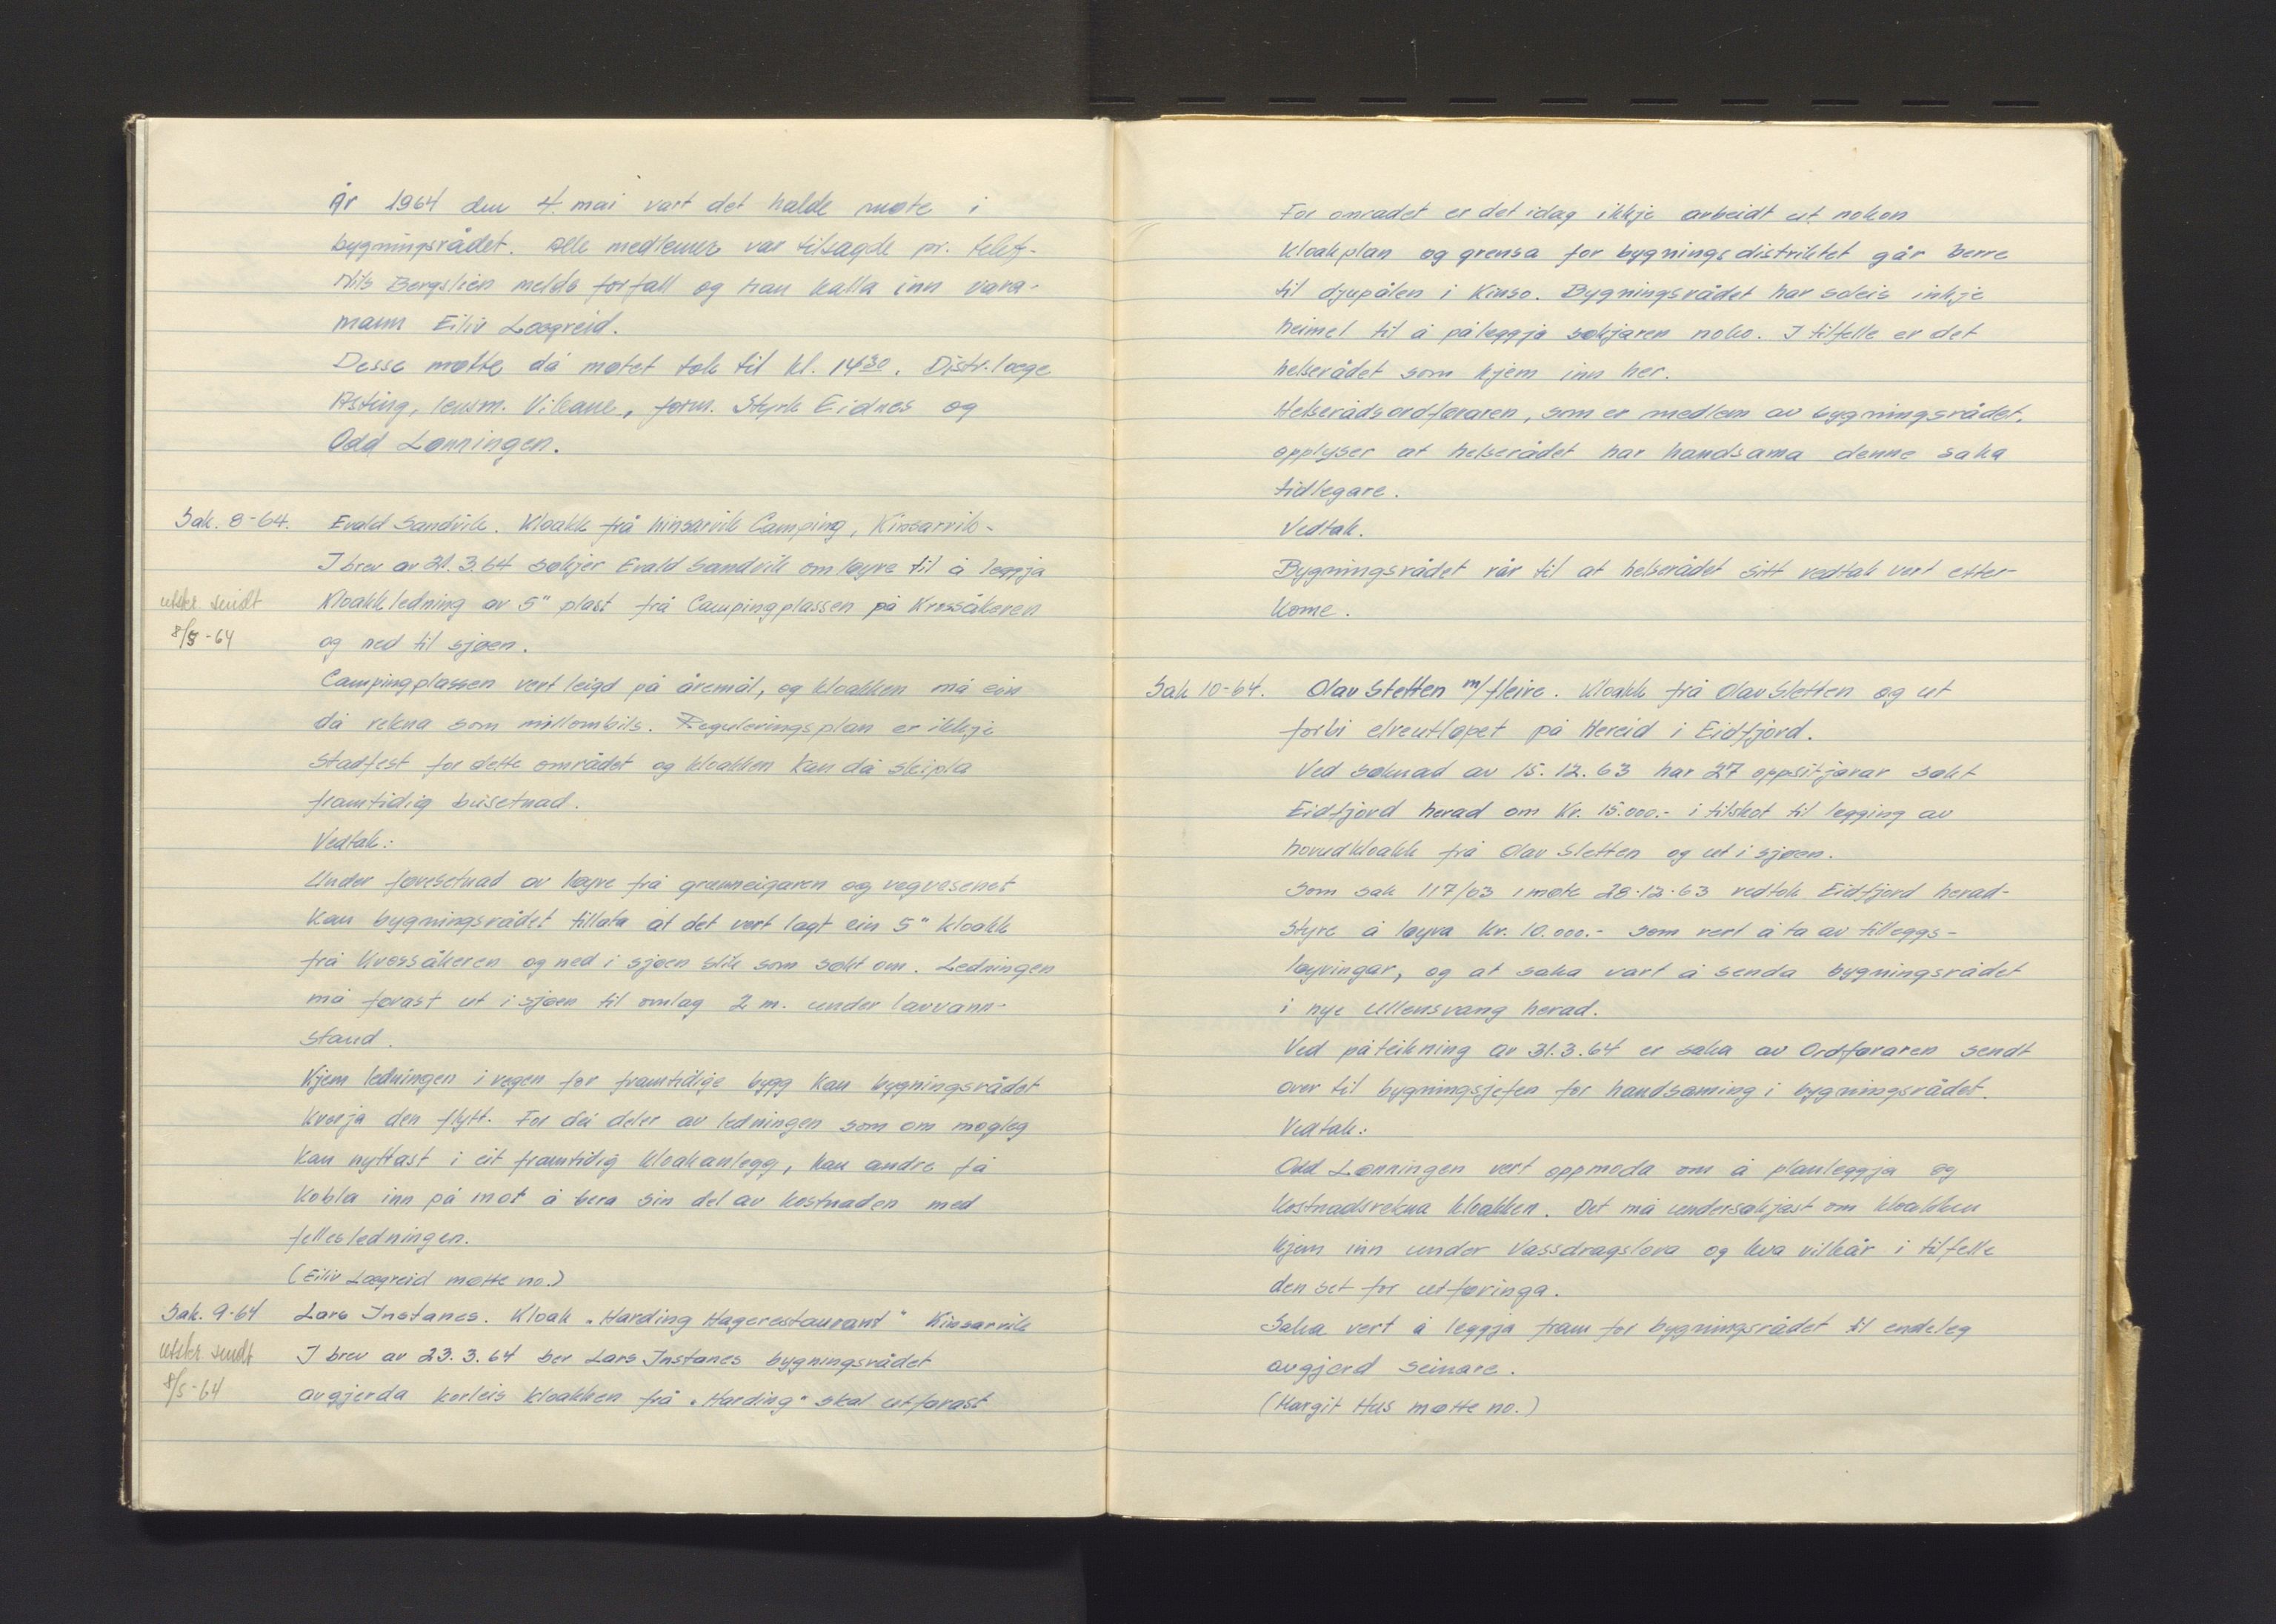 År 1964 den 4. mai vart det halde møte i
bygningsrådet. Alle medlemer var tilsagde pr. telef.
Nils Bergslien melde forfall og han kalla inn vara-
mann Eiliv Lægreid.
Desse møtte då møtet tok til kl. 14³⁰. Distr. læge
Asting, lensm. Vikane, form. Styrk Eidnes og
Odd Lønningen.
Sak. 8-64. Evald Sandvik. Kloakk frå Kinsarvik Camping, Kinsarvik.
I brev av 21.3.64 søkjer Evald Sandvik om løyve til å leggja
utskr. sendt Kloakkledning av 5" plast frå Campingplassen på Krossåkeren
8/5-64 og ned til sjøen.
Campingplassen vert leigd på åremål, og kloakken må ein
då rekna som millombils. Reguleringsplan er ikkje
stadfest for dette området og kloakken kan då skipla
framtidig busetnad.
Vedtak:
Under føresetnad av løyve frå grunneigaren og vegvesenet
kan bygningsrådet tillata at det vert lagt ein 5" kloakk
frå Krossåkeren og ned i sjøen slik som søkt om. Ledningen
må førast ut i sjøen til omlag 2 m. under lavvann-
stand.
Kjem ledningen i vegen for framtidige bygg kan bygningsrådet
krevja den flytt. For dei deler av ledningen som om mogleg
kan nyttast i eit framtidig kloakanlegg, kan andre få
kobla inn på mot å bera sin del av kostnaden med
fellesledningen.
(Eiliv Lægreid møtte no.)
Sak. 9-64 Lars Instanes. Kloak "Harding Hagerestaurant" Kinsarvik
utskr. sendt I brev av 23.3.64 ber Lars Instanes bygningsrådet
8/5-64 avgjerda korleis kloakken frå "Harding" skal utførast
For området er det idag ikkje arbeidt ut nokon
kloakplan og grensa for bygningsdistriktet går berre
til djupålen i Kinso. Bygningsrådet har soleis inkje
heimel til å påleggja søkjaren noko. I tilfelle er det
helserådet som kjem inn her.
Helserådsordføraren, som er medlem av bygningsrådet,
opplyser at helserådet har handsama denne saka
tidlegare.
Vedtak.
Bygningsrådet rår til at helserådet sitt vedtak vert etter-
kome.
Sak 10-64. Olav Sletten m/fleire. Kloakk frå Olav Sletten og ut
forbi elveutløpet på Hereid i Eidfjord.
Ved søknad av 15.12.63 har 27 oppsitjarar søkt
Eidfjord herad om Kr. 15.000.- i tilskot til legging av
hovudkloakk frå Olav Sletten og ut i sjøen.
Som sak 117/63 i møte 28.12.63 vedtok Eidfjord herad-
styre å løyva kr. 10.000.- som vert å ta av tilleggs-
løyvingar, og at saka vart å senda bygningsrådet
i nye Ullensvang herad.
Ved påteikning av 31.3.64 er saka av Ordføraren sendt
over til bygningsjefen for handsaming i bygningsrådet.
Vedtak:
Odd Lønningen vert oppmoda om å planleggja og
kostnadsrekna kloakken. Det må undersøkjast om kloakken
kjem inn under Vassdragslova og kva vilkår i tilfelle
den set for utføringa.
Saka vert å leggja fram for bygningsrådet til endeleg
avgjerd seinare.
(Margit Hus møtte no.)